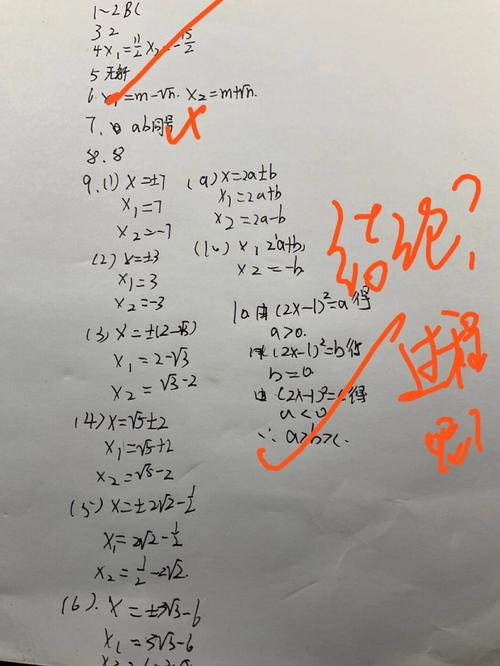 1~2BC
3 2
4 x₁=11/2 x₂=-15/2
5 无解
6. x₁=m-√n. x₂=m+√n.
7. ab同号
8. 8
9.(1) x=±7
x₁=7
x₂=-7
(2) x=±3
x₁=3
x₂=-3
(3) x=±(2-√3)
x₁=2-√3
x₂=√3-2
(4) x=√5±2
x₁=√5+2
x₂=√5-2
(5) x=±2√2-1/2
x₁=2√2-1/2
x₂=1/2-2√2.
(6). x=±3√3-6
x₁=3√3-6
(9) x=2a±b
x₁=2a+b
x₂=2a-b
(10) x₁ 2a+b,
x₂=-b
10 由(2x-1)²=a得
a>0.
由(2x-1)²=b得
b=0
由(2x-1)²=c得
a<0
∴a>b>c.
结论?
过程
呢?